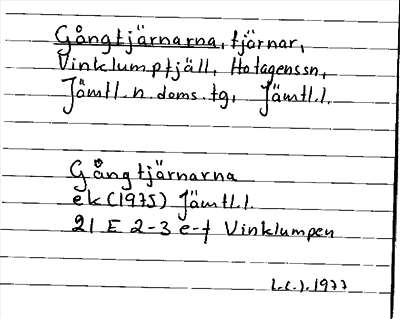 Gångtjärnarna, tjärnar,
Vinklumptjäll, Hotagenssn,
Jämtl. n. doms. tg, Jämtl. l.
Gångtjärnarna
ek (1975) Jämtl. l.
21 E 2-3 e-f Vinklumpen
1977